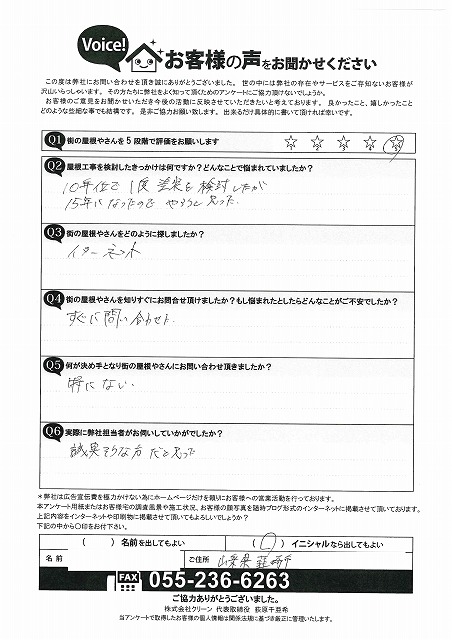 Voice! お客様の声をお聞かせください
この度は弊社にお問い合わせを頂き誠にありがとうございました。 世の中には弊社の存在やサービスをご存知ないお客様が
沢山いらっしゃいます。 その方たちに弊社をよく知って頂くためのアンケートにご協力頂けないでしょうか。
お客様のご意見をお聞かせいただき今後の活動に反映させていただきたいと考えております。 良かったこと、嬉しかったこと
どのような些細な事でも結構です。 是非ご協力お願い致します。 出来るだけ具体的に書いて頂ければ幸いです。
Q1 街の屋根やさんを5段階で評価をお願いします ☆ ☆ ☆ ☆ ☆
Q2 屋根工事を検討したきっかけは何ですか?どんなことで悩まれていましたか?
10年位で1度塗装を検討したが
15年になったので やろうと思った
Q3 街の屋根やさんをどのように探しましたか?
インターネット
Q4 街の屋根やさんを知りすぐにお問合せ頂けましたか?もし悩まれたとしたらどんなことがご不安でしたか?
すぐに問い合わせた
Q5 何が決め手となり街の屋根やさんにお問い合わせ頂きましたか?
特にない
Q6 実際に弊社担当者がお伺いしていかがでしたか?
誠実そうな方だと思った
*弊社は広告宣伝費を極力かけない為にホームページだけを頼りにお客様への営業活動を行っております。
本アンケート用紙またはお客様宅の調査風景や施工状況、お客様の顔写真を随時ブログ形式のインターネットに掲載させて頂いております。
上記内容をインターネットや印刷物に掲載させて頂いてもよろしいでしょうか?
下記の中から〇印をお付下さい。
( ) 名前を出してもよい ( 〇 ) イニシャルなら出してもよい
名前 ご住所 山梨県韮崎市
FAX 055-236-6263
ご協力ありがとうございました。
株式会社クリーン 代表取締役 荻原千亜希
当アンケートで取得したお客様の個人情報は関係法規に基づき厳正に管理いたします。